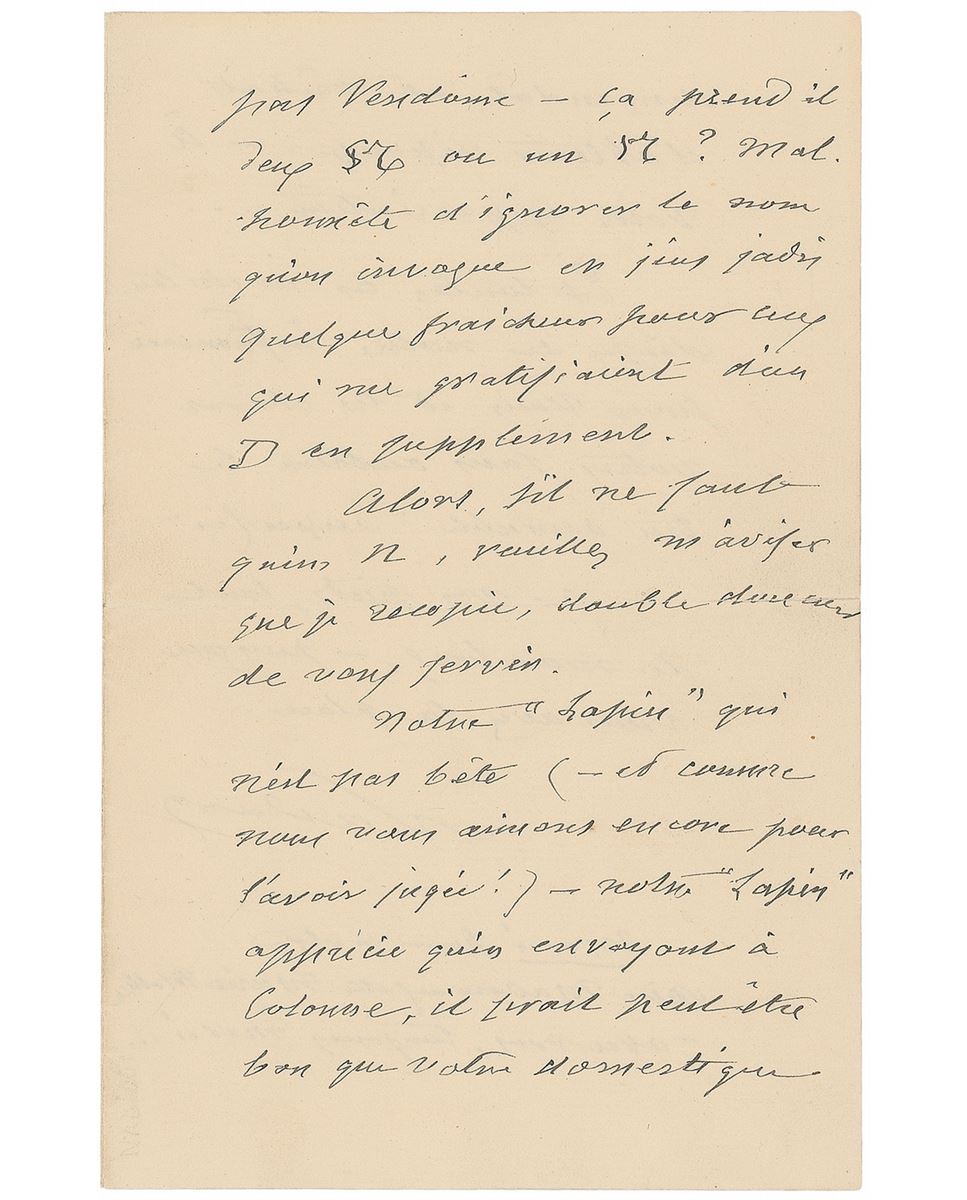 pas Vendôme — ça prend il
deux N ou un N ? Mal-
honnête d'ignorer le nom
qu'on invoque en jeux jadis
quelque fraîcheur pour ceux
qui me gratifiaient d'un
D en supplément.
Alors, s'il ne faut
qu'un N, veuillez m'aviser
que je recopie, double douceur
de vous servir.
Notre "Lapin" qui
n'est pas bête (— et comme
nous vous aimons encore pour
l'avoir jugée!) — notre "Lapin"
apprécie qu'en envoyant à
Colonne, il serait peut être
bon que votre domestique